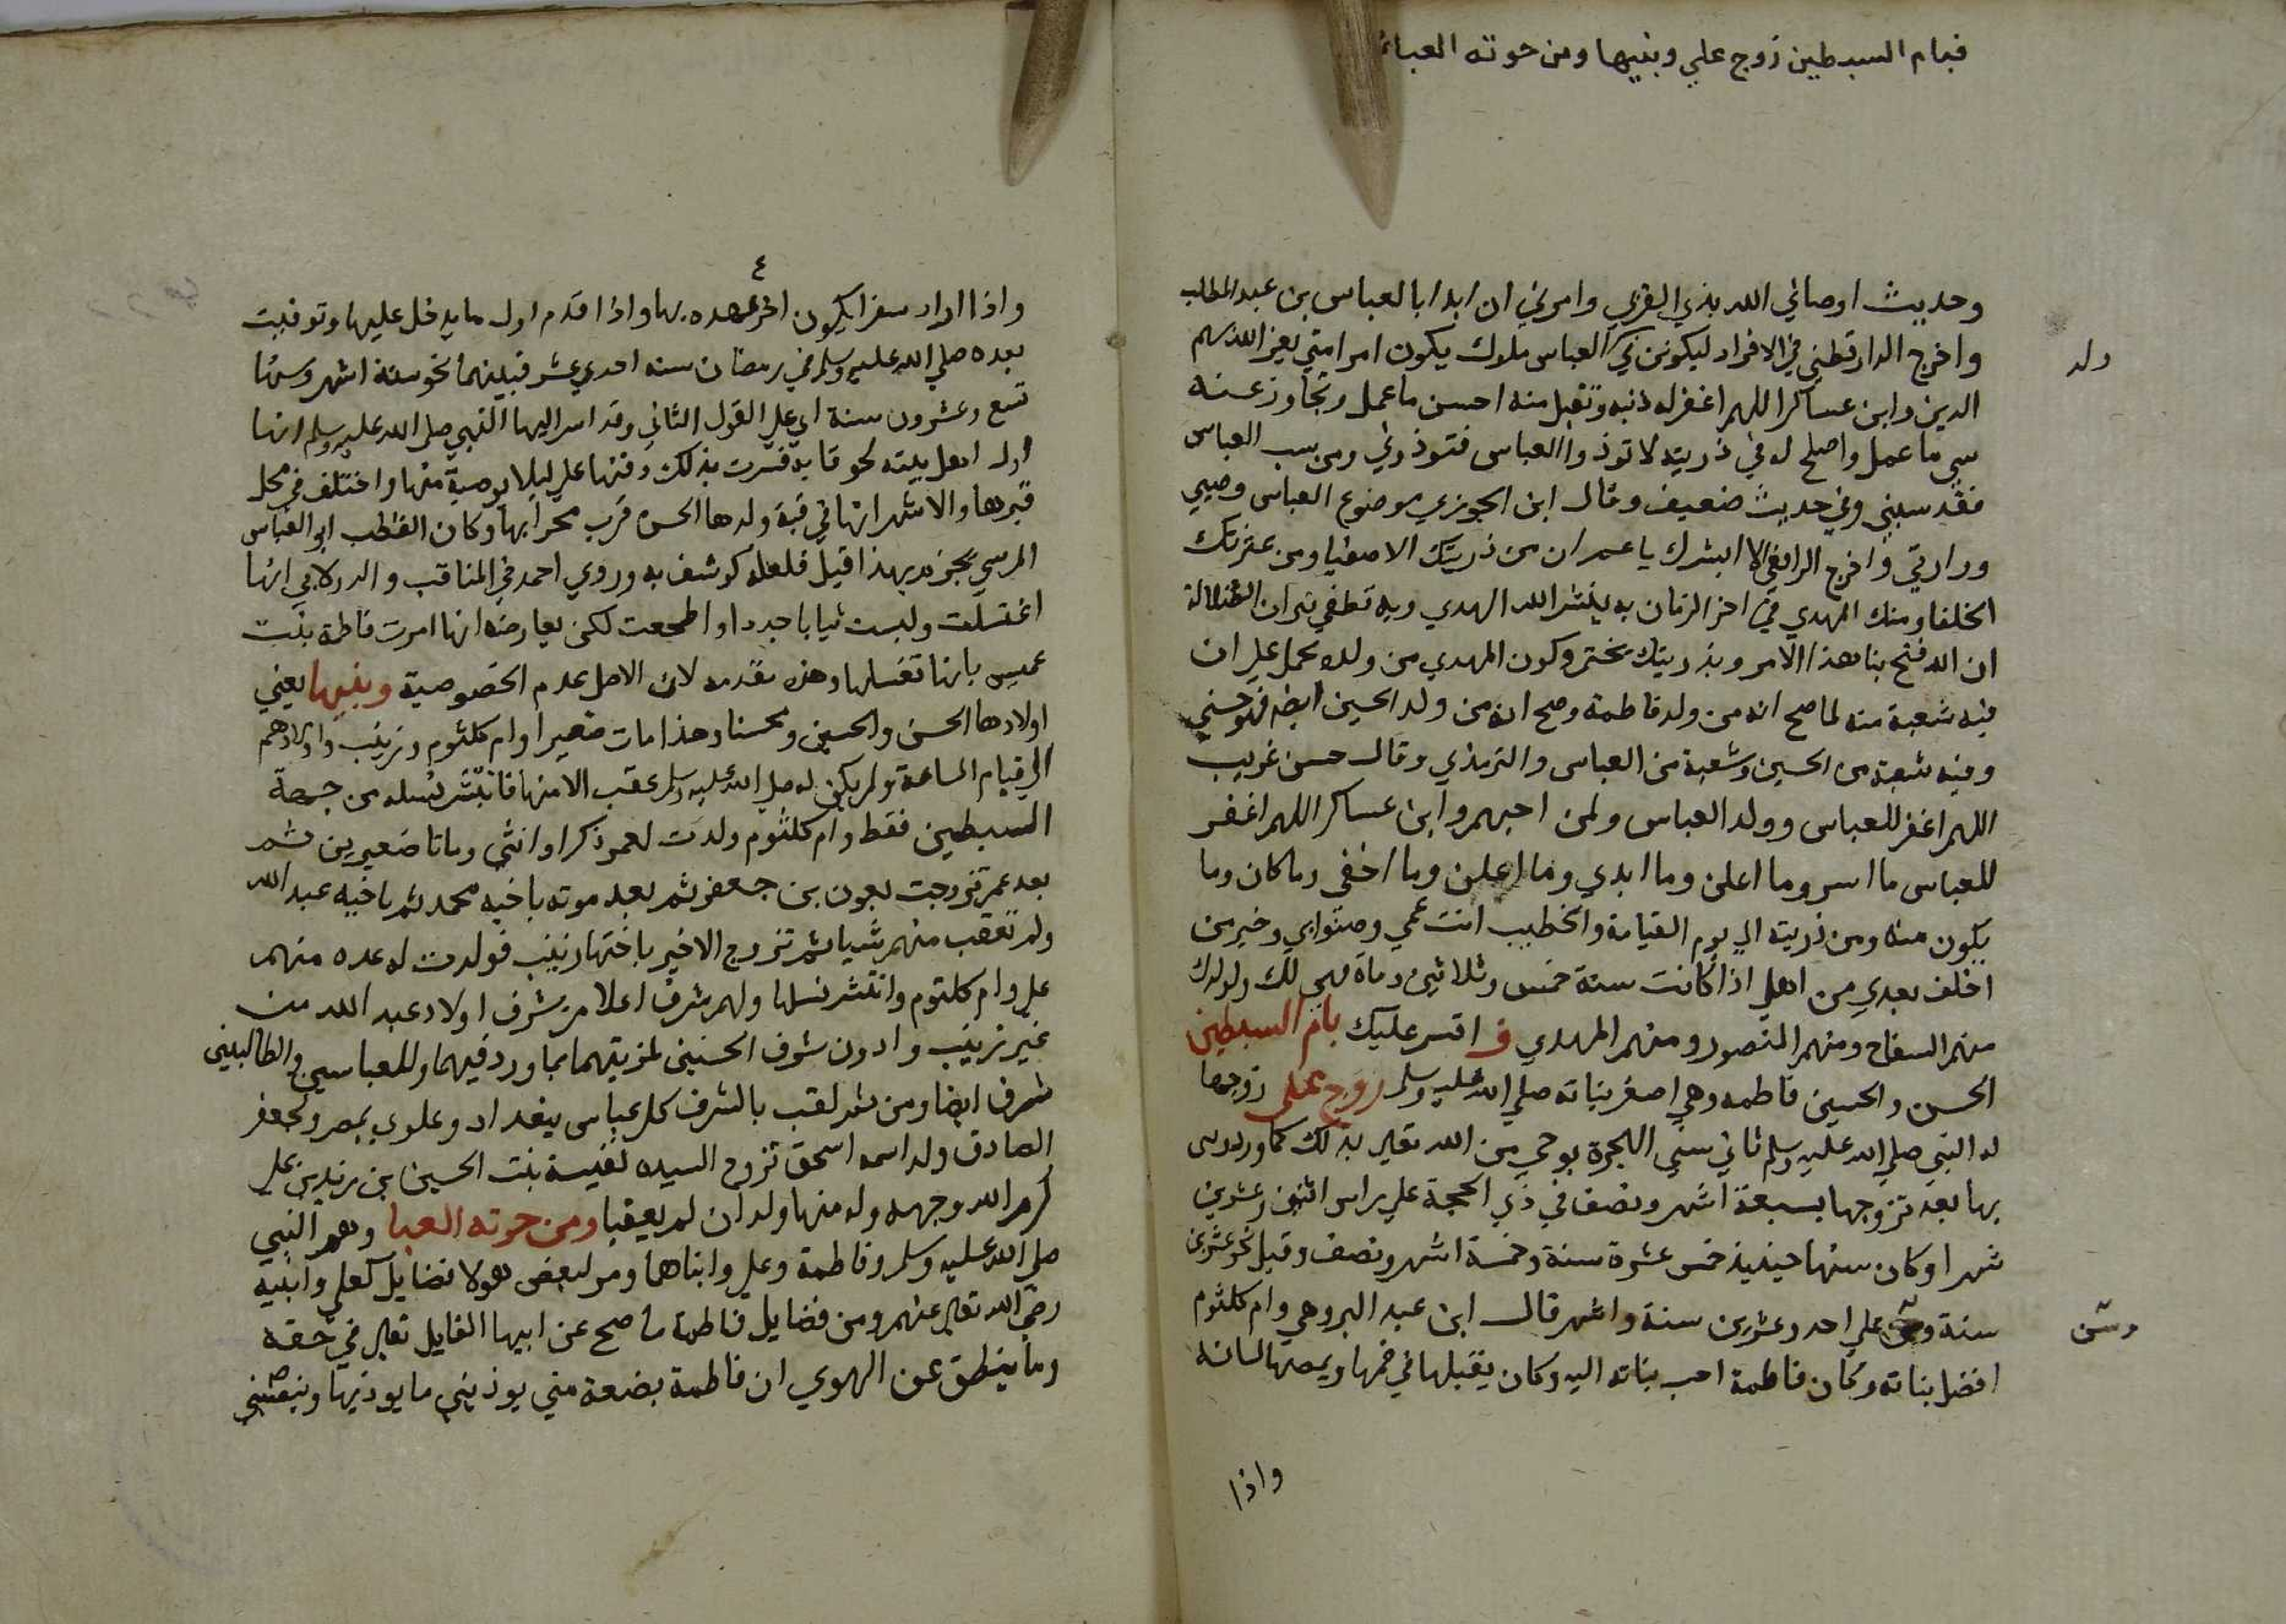 فبام السبطين زوج علي وبنيها ومن حوته العباء
وحديث اوصاني الله بذي القربي وامرني ان ابدا بالعباس بن عبد المطلب
واخرج الدارقطني في الافراد ليكونن في العباس ملوك يكون امر امتي يعز الله بهم
ولد
الدين وابن عساكر اللهم اغفر له ذنبه وتقبل منه احسن ما عمل وتجاوز عنه
سي ما عمل واصلح له في ذريته لا توذوا العباس فتوذوني ومن سب العباس
فقد سبني وفي حديث ضعيف وقال ابن الجوزي موضوع العباس وصيي
ووارثي واخرج الرافعي الا ابشرك يا عم ان من ذريتك الاصفيا ومن عترتك
الخلفا ومنك المهدي في اخر الزمان به ينشر الله الهدي وبه تطفي نيران الضلالة
ان الله فتح بنا هذا الامر وبذريتك يختم وكون المهدي من ولده يحمل علي ان
فيه شعبة منه لما صح انه من ولد فاطمة وصح انه من ولد الحسين ايضا فهو حسني
وفيه شعبة من الحسين وشعبة من العباس والترمذي وقال حسن غريب
اللهم اغفر للعباس وولد العباس ولمن احبهم وابن عساكر اللهم اغفر
للعباس ما اسر وما اعلن وما ابدي وما اعلن وما اخفي وما كان وما
يكون منه ومن ذريته الي يوم القيامة والخطيب انت عمي وصنو ابي وخير من
اخلف بعدي من اهلي اذا كانت سنة خمس وثلاثين وماة فهي لك ولولدك
منهم السفاح ومنهم المنصور ومنهم المهدي ف اقسر عليك بام السبطين
الحسن والحسين فاطمه وهي اصغر بناته صلي الله عليه وسلم زوج علي زوجها
له النبي صلي الله عليه وسلم ثاني سني الهجرة بوحي من الله تعالي بذلك كما ورد وبني
بها بعد تزوجها بسبعة اشهر ونصف في ذي الحجة علي راس اثنين وعشرين
شهرا وكان سنها حينيذ خمس عشرة سنة وخمسة اشهر ونصف وقيل نحو عشرين
سنة وسن علي احد وعشرين سنة واشهر قال ابن عبد البر وهي وام كلثوم
وسن
افضل بناته وكان فاطمة احب بناته اليه وكان يقبلها في فمها ويمصها لسانه
واذا
٤
واذا اراد سفرا يكون اخر عهده بها واذا قدم اول ما يدخل عليها وتوفيت
بعده صلي الله عليه وسلم في رمضان سنه احدي عشر فبينهما نحو ستة اشهر وسنها
تسع وعشرون سنة اي علي القول الثاني وقد اسر اليها النبي صلي الله عليه وسلم انها
اول اهل بيته لحوقا به فسرت بذلك دفنها علي ليلا بوصية منها واختلف في محل
قبرها والاشهر انها في قبة ولدها الحسن قرب محرابها وكان القطب ابو العباس
المرسي يجزم بهذا قيل فلعله كوشف به وروي احمد في المناقب والدولابي انها
اغتسلت ولبست ثيابا جددا واضجعت لكن يعارضه انها امرت فاطمة بنت
عميس بانها تغسلها وهذه مقدمه لان الاصل عدم الخصوصية وبنيها يعني
اولادها الحسن والحسين ومحسنا وهذا مات صغيرا وام كلثوم وزينب واولادهم
الي قيام الساعة ولم يكن له صلي الله عليه وسلم عقب الا منها فانتشر نسله من جهة
السبطين فقط وام كلثوم ولدت لعمر ذكرا وانثي وماتا صغيرين ثم
بعد عمر تزوجت بعون بن جعفر ثم بعد موته باخيه محمد ثم باخيه عبد الله
ولم تعقب منهم شيا ثم تزوج الاخير باختها زينب فولدت له عده منهم
علي وام كلثوم وانتشر نسلها ولهم شرف اعلا من شرف اولاد عبد الله من
غير زينب وادون شرف الحسنين لمزيتهما بما ورد فيهما وللعباسيين والطالبيين
شرف ايضا ومن ثم لقب بالشرف كل عباسي ببغداد وعلوي بمصر ولجعفر
الصادق ولد اسمه اسحق تزوج السيده نفيسة بنت الحسين بن زيد بن علي
كرم الله وجهه وله منها ولدان لم يعقبا ومن حوته العبا وهم النبي
صلي الله عليه وسلم وفاطمة وعلي وابناهما ومر لبعض هولا فضايل كعلي وابنيه
رضي الله تعالي عنهم ومن فضايل فاطمة ما صح عن ابيها القايل تعالي في حقه
وما ينطق عن الهوي ان فاطمة بضعة مني يوذيني ما يوذيها وينصبني